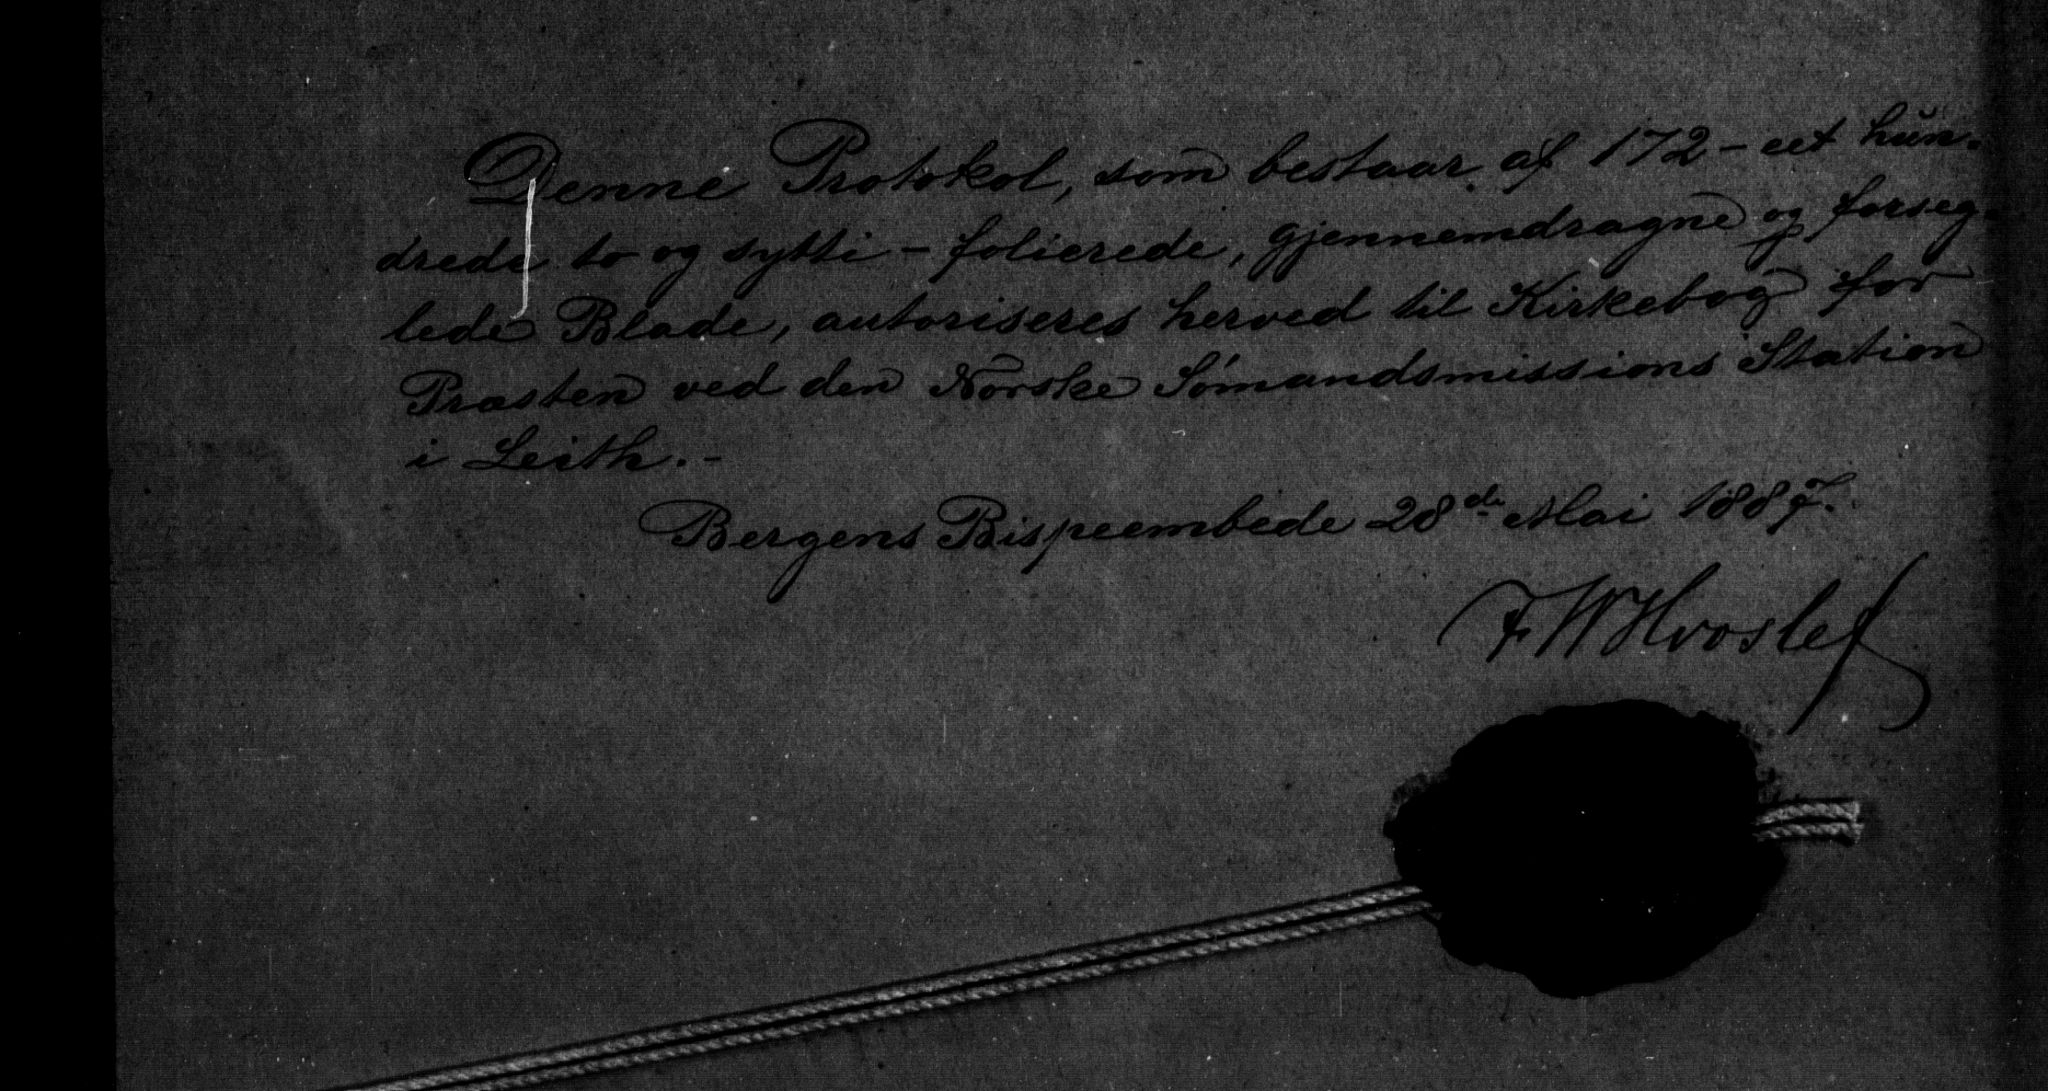 Denne Protokol, som bestaar af 172 - eet hun-
drede to og sytti - folierede, gjennemdragne og forseg-
lede Blade, autoriseres herved til Kirkebog for
Præsten ved den Norske Sømandsmissions Station
i Leith. -
Bergens Bispeembede 28de Mai 1887.
FWHvoslef